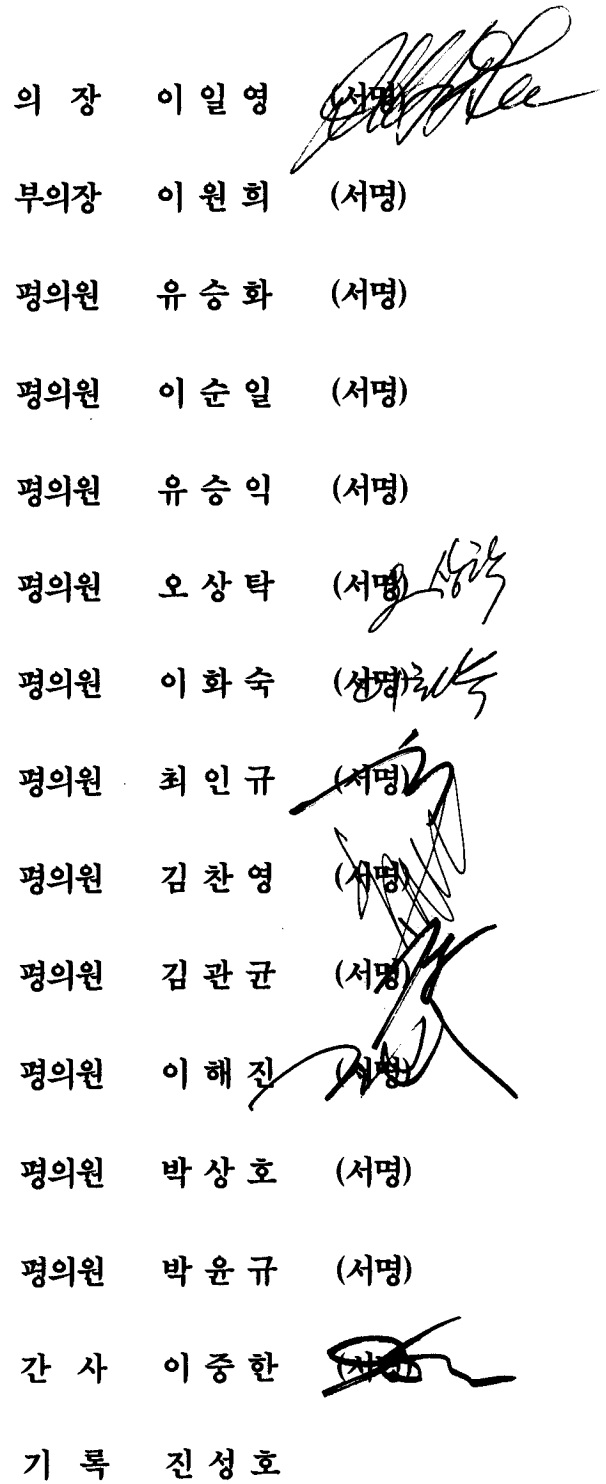 의 장 이 일 영 (서명)
부의장 이 원 희 (서명)
평의원 유 승 화 (서명)
평의원 이 순 일 (서명)
평의원 유 승 익 (서명)
평의원 오 상 탁 (서명) 오상탁
평의원 이 화 숙 (서명) 이화숙
평의원 최 인 규 (서명)
평의원 김 찬 영 (서명)
평의원 김 관 균 (서명)
평의원 이 해 진 (서명)
평의원 박 상 호 (서명)
평의원 박 윤 규 (서명)
간 사 이 중 한 (서명)
기 록 진 성 호